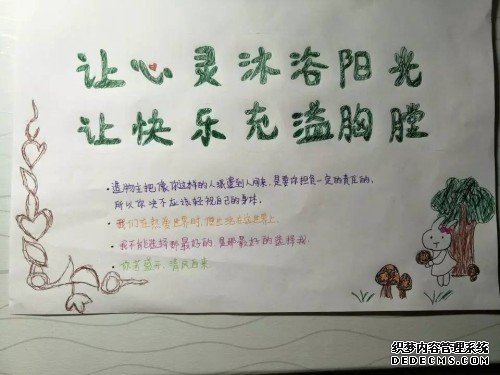 让心灵沐浴阳光
让快乐充溢胸膛
·造物主把像你这样的人派遣到人间来，是要你担负一定的责任的，
所以你决不应该轻视自己的身体.
·我们在热爱世界时，便生活在这世界上.
·我不能选择那最好的 是那最好的选择我.
·你若盛开，清风自来
织梦内容管理系统
DEDECMS.COM